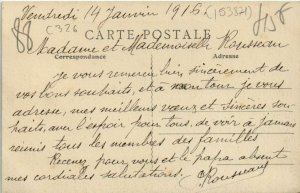 Vendredi 14 Janvier 1916 (15337)
88 C326
CARTE POSTALE
Madame et Mademoiselle Rousseau
Correspondance Adresse
Je vous remercie bien sincèrement de
vos bons souhaits, et à mon tour je vous
adresse, mes meilleurs vœux et sincères sou-
haits, avec l'espoir pour tous, de voir à jamais
réunis tous les membres des familles
Recevez pour vous et le papa absent
mes cordiales salutations.
Rousseau